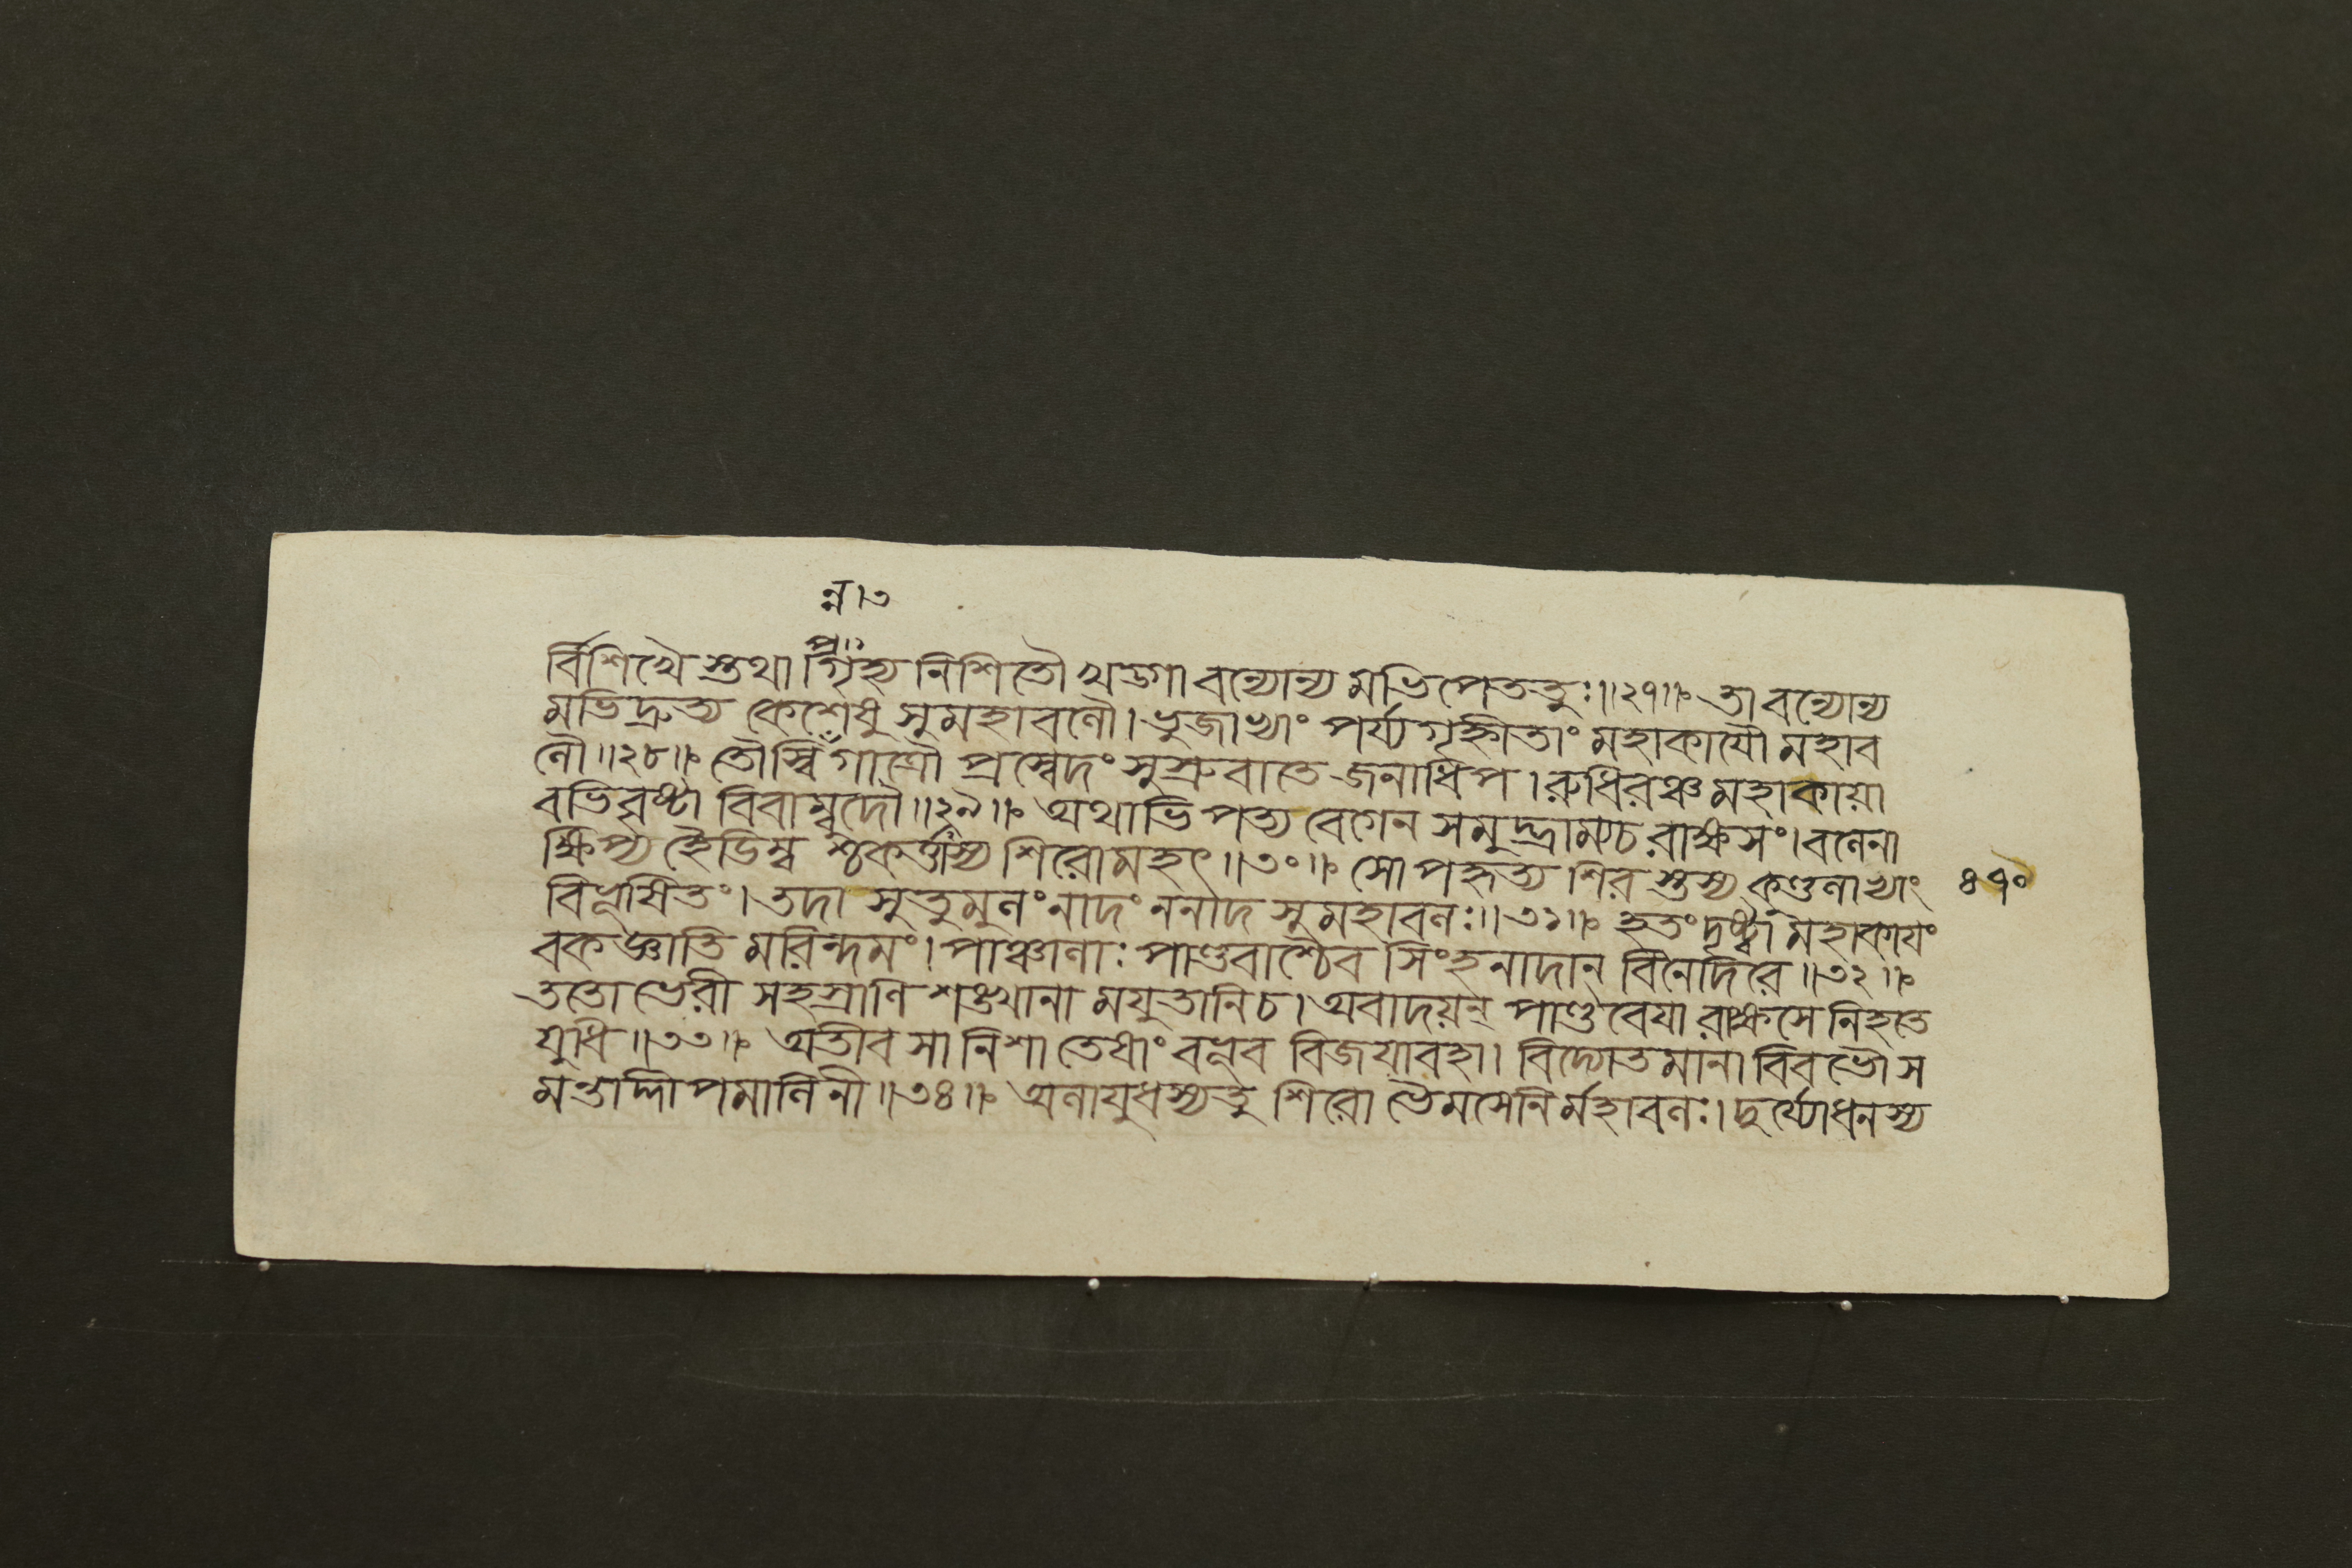 ন্ন।৩
প্র॥
র্বিশিখৈ স্তথা গৃহ্য নিশিতৌ খড্গা বন্যোন্য মভিপেততুঃ॥২৭॥ তা বন্যোন্য
মভিদ্রুত্য কেশেষু সুমহাবলৌ। ভুজাভ্যাং পর্য্যগৃহ্নীতাং মহাকাযৌ মহাব
লৌ॥২৮॥ তৌস্বিঁগাত্রৌ প্রস্বেদং সুস্রুবাতে জনাধিপ। রুধিরঞ্চ মহাকায়া
বভিবৃষ্টা বিবাম্বুদৌ॥২৯॥ অথাভিপত্য বেগেন সমুদ্ভ্রাম্যচ রাক্ষসং। বলেনা
ক্ষিপ্য হৈডিম্ব শ্চকর্ত্তাস্য শিরোমহৎ॥৩০॥ সোপহৃত্য শির স্তস্য কুণ্ডলাভ্যাং ৪৭০
বিভূষিতং। তদা সুতুমুলং নাদং ননাদ সুমহাবলঃ॥৩১॥ হতং দৃষ্ট্বা মহাকাযং
বকজ্ঞাতি মরিন্দমং। পাঞ্চালাঃ পাণ্ডবাশ্চৈব সিংহনাদান্ বিনেদিরে॥৩২॥
ততো ভেরী সহস্রাণি শঙ্খানা মযুতানিচ। অবাদয়ন্ পাণ্ডবেযা রাক্ষসে নিহতে
যুধি॥৩৩॥ অতীব সা নিশা তেষাং বভূব বিজয়াবহা। বিদ্যোতমানা বিবভৌ স
মন্তাদ্দীপমালিনী॥৩৪॥ অলাযুধস্যতু শিরো ভৈমসেনির্মহাবলঃ। দুর্য্যোধনস্য